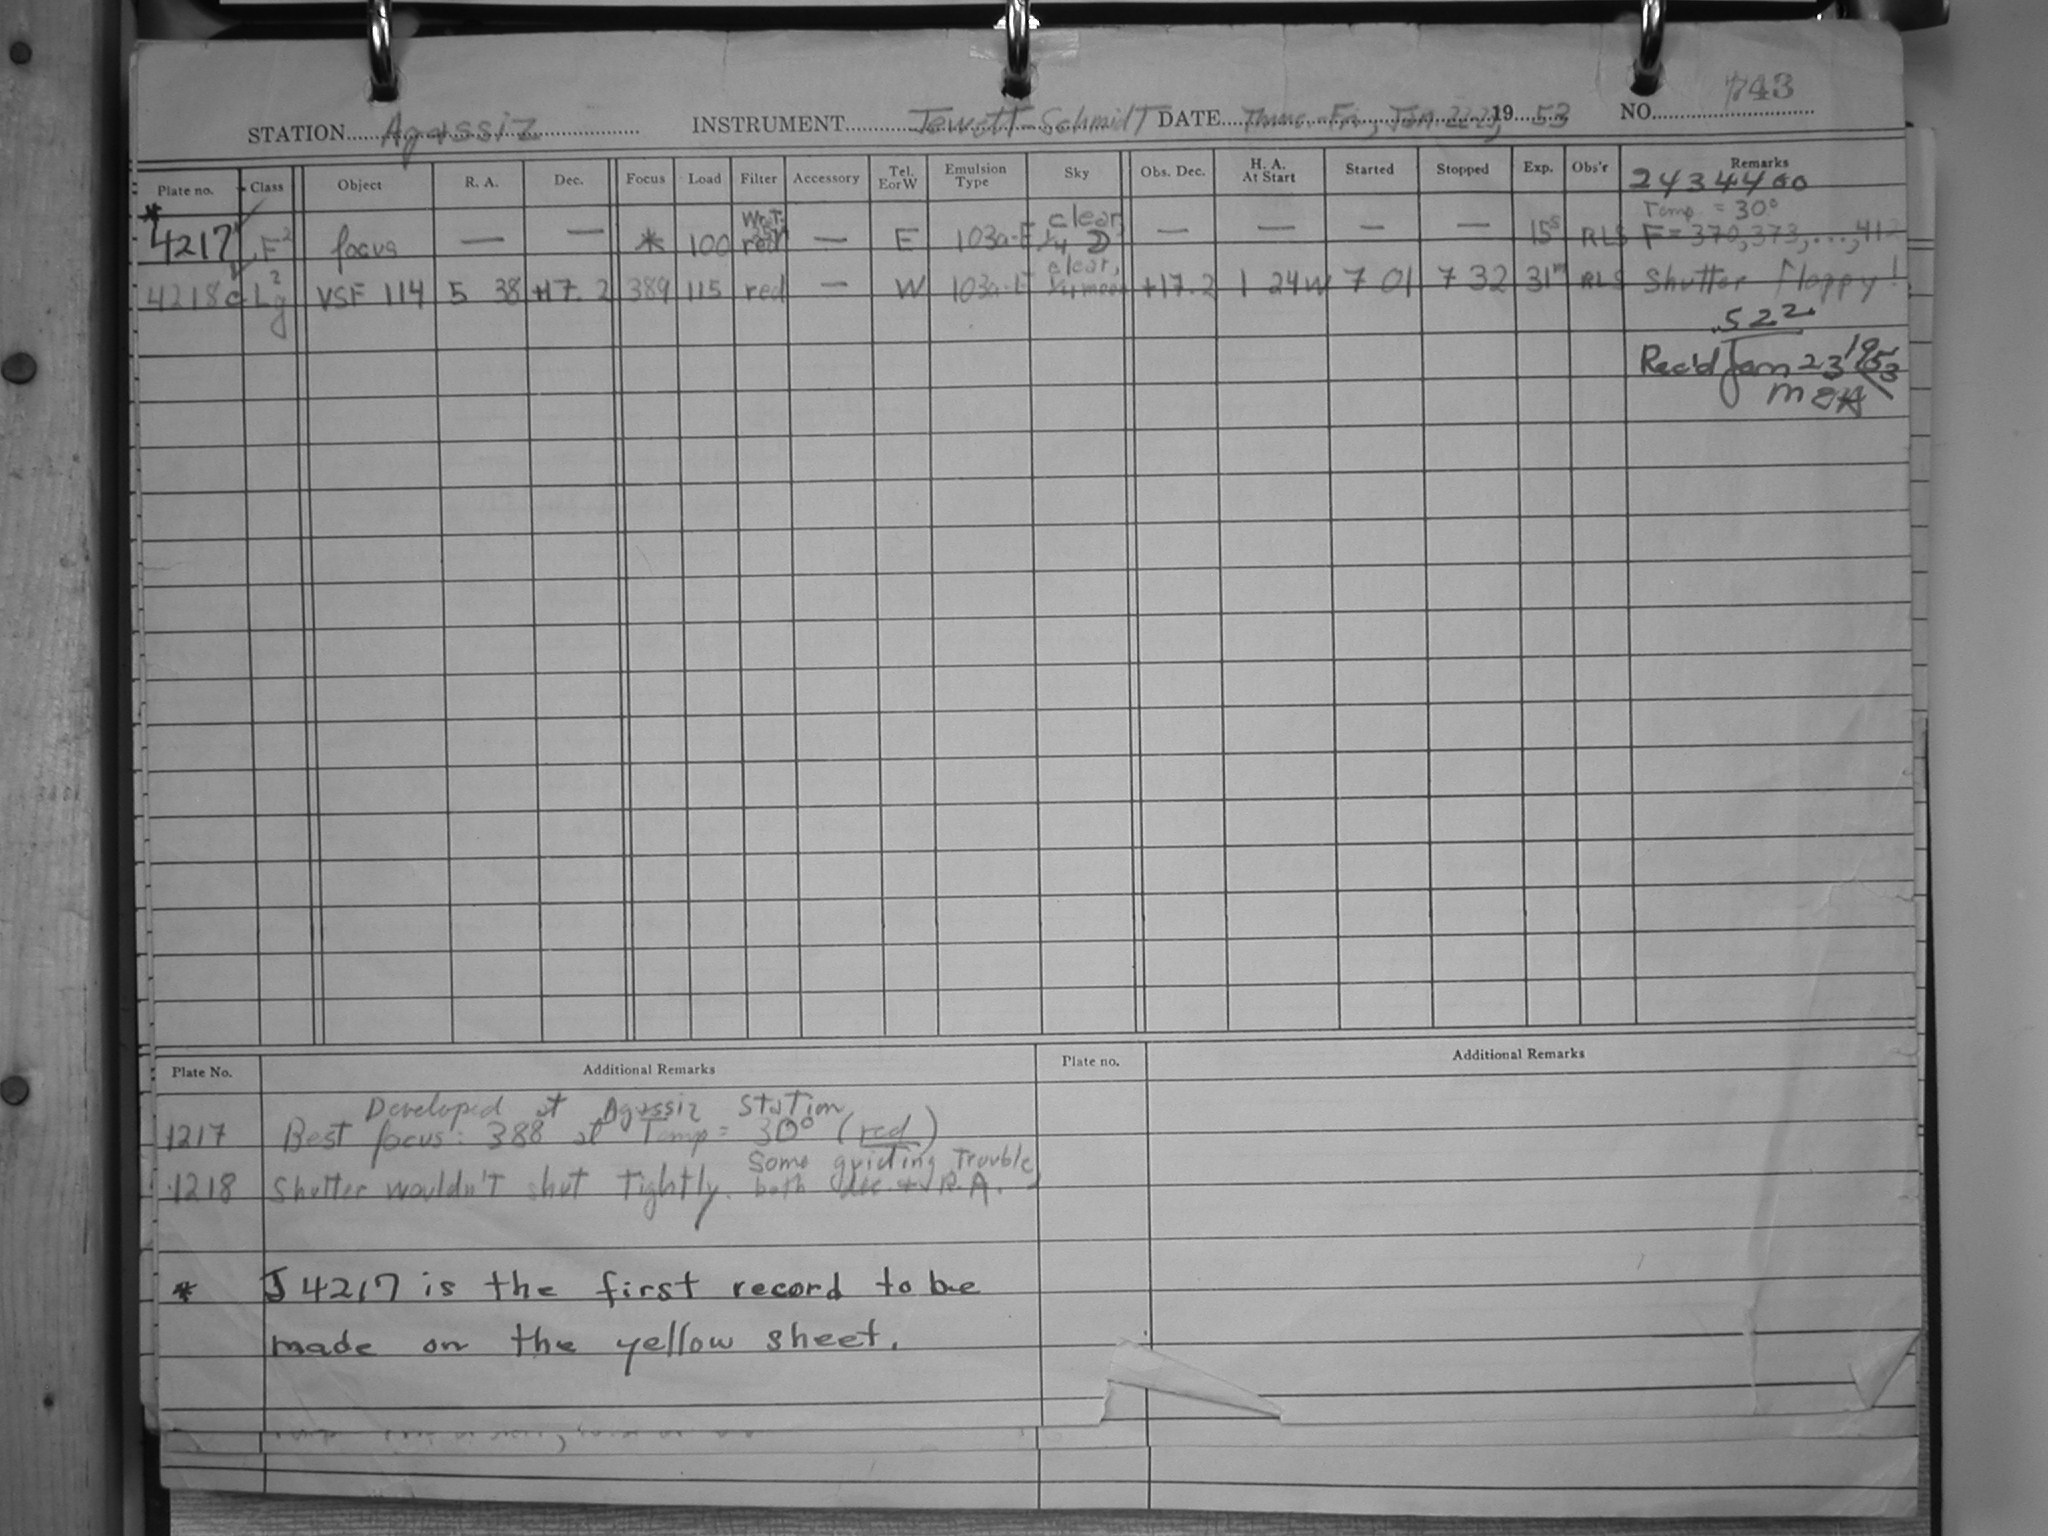 743
STATION Agassiz INSTRUMENT Jewett-Schmidt DATE Thurs-Fri, Jan 22-23, 1953 NO.
Plate no. Class Object R. A. Dec. Focus Load Filter Accessory Tel. E or W Emulsion Type Sky Obs. Dec. H. A. At Start Started Stopped Exp. Obs'r Remarks
2434400
* 4217 F2 focus — — * 100 red — E 103a-E clear, 1/4 — — — — 15s RLS Temp = 30° F = 370, 373, ..., 412
4218 Lg2 VSF 114 5 38 +17.2 389 115 red — W 103a-E clear, 1/4 moon +17.2 1 24W 7 01 7 32 31m RLS Shutter floppy!
522
Rec'd Jan 23 1953
Plate No. Additional Remarks Plate no. Additional Remarks
Developed at Agassiz Station
1217 Best focus: 388 at Temp = 30° (red)
1218 Shutter wouldn't shut tightly. Some guiding trouble, both dec. + R.A.
* J4217 is the first record to be
made on the yellow sheet.